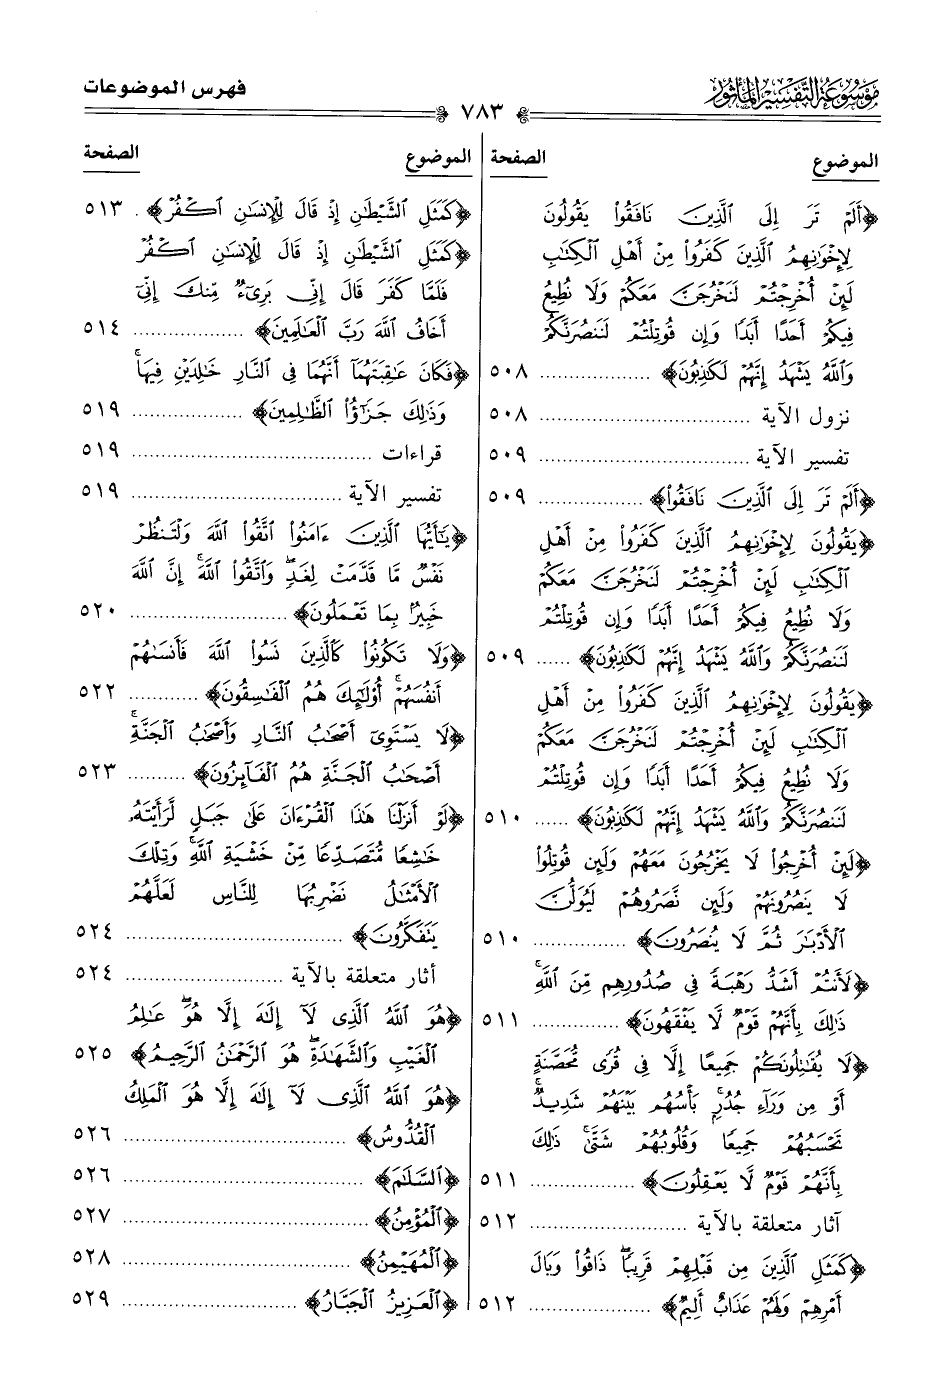 موسوعة التفسير المأثور
فهرس الموضوعات
٧٨٣
الموضوع الصفحة
﴿أَلَمْ تَرَ إِلَى الَّذِينَ نَافَقُوا يَقُولُونَ
لِإِخْوَانِهِمُ الَّذِينَ كَفَرُوا مِنْ أَهْلِ الْكِتَابِ
لَئِنْ أُخْرِجْتُمْ لَنَخْرُجَنَّ مَعَكُمْ وَلَا نُطِيعُ
فِيكُمْ أَحَدًا أَبَدًا وَإِن قُوتِلْتُمْ لَنَنصُرَنَّكُمْ
وَاللَّهُ يَشْهَدُ إِنَّهُمْ لَكَاذِبُونَ﴾ ..................... ٥٠٨
نزول الآية ..................... ٥٠٨
تفسير الآية ..................... ٥٠٩
﴿أَلَمْ تَرَ إِلَى الَّذِينَ نَافَقُوا﴾ ..................... ٥٠٩
﴿يَقُولُونَ لِإِخْوَانِهِمُ الَّذِينَ كَفَرُوا مِنْ أَهْلِ
الْكِتَابِ لَئِنْ أُخْرِجْتُمْ لَنَخْرُجَنَّ مَعَكُمْ
وَلَا نُطِيعُ فِيكُمْ أَحَدًا أَبَدًا وَإِن قُوتِلْتُمْ
لَنَنصُرَنَّكُمْ وَاللَّهُ يَشْهَدُ إِنَّهُمْ لَكَاذِبُونَ﴾ ...... ٥٠٩
﴿يَقُولُونَ لِإِخْوَانِهِمُ الَّذِينَ كَفَرُوا مِنْ أَهْلِ
الْكِتَابِ لَئِنْ أُخْرِجْتُمْ لَنَخْرُجَنَّ مَعَكُمْ
وَلَا نُطِيعُ فِيكُمْ أَحَدًا أَبَدًا وَإِن قُوتِلْتُمْ
لَنَنصُرَنَّكُمْ وَاللَّهُ يَشْهَدُ إِنَّهُمْ لَكَاذِبُونَ﴾ ...... ٥١٠
﴿لَئِنْ أُخْرِجُوا لَا يَخْرُجُونَ مَعَهُمْ وَلَئِن قُوتِلُوا
لَا يَنصُرُونَهُمْ وَلَئِن نَّصَرُوهُمْ لَيُوَلُّنَّ
الْأَدْبَارَ ثُمَّ لَا يُنصَرُونَ﴾ ..................... ٥١٠
﴿لَأَنتُمْ أَشَدُّ رَهْبَةً فِي صُدُورِهِم مِّنَ اللَّهِ ۚ
ذَٰلِكَ بِأَنَّهُمْ قَوْمٌ لَّا يَفْقَهُونَ﴾ ..................... ٥١١
﴿لَا يُقَاتِلُونَكُمْ جَمِيعًا إِلَّا فِي قُرًى مُّحَصَّنَةٍ
أَوْ مِن وَرَاءِ جُدُرٍ ۚ بَأْسُهُم بَيْنَهُمْ شَدِيدٌ ۚ
تَحْسَبُهُمْ جَمِيعًا وَقُلُوبُهُمْ شَتَّىٰ ۚ ذَٰلِكَ
بِأَنَّهُمْ قَوْمٌ لَّا يَعْقِلُونَ﴾ ..................... ٥١١
آثار متعلقة بالآية ..................... ٥١٢
﴿كَمَثَلِ الَّذِينَ مِن قَبْلِهِمْ قَرِيبًا ۖ ذَاقُوا وَبَالَ
أَمْرِهِمْ وَلَهُمْ عَذَابٌ أَلِيمٌ﴾ ..................... ٥١٢
الموضوع الصفحة
﴿كَمَثَلِ الشَّيْطَانِ إِذْ قَالَ لِلْإِنسَانِ اكْفُرْ﴾ . ٥١٣
﴿كَمَثَلِ الشَّيْطَانِ إِذْ قَالَ لِلْإِنسَانِ اكْفُرْ
فَلَمَّا كَفَرَ قَالَ إِنِّي بَرِيءٌ مِّنكَ إِنِّي
أَخَافُ اللَّهَ رَبَّ الْعَالَمِينَ﴾ ..................... ٥١٤
﴿فَكَانَ عَاقِبَتَهُمَا أَنَّهُمَا فِي النَّارِ خَالِدَيْنِ فِيهَا ۚ
وَذَٰلِكَ جَزَاؤُا الظَّالِمِينَ﴾ ..................... ٥١٩
قراءات ..................... ٥١٩
تفسير الآية ..................... ٥١٩
﴿يَا أَيُّهَا الَّذِينَ ءَامَنُوا اتَّقُوا اللَّهَ وَلْتَنظُرْ
نَفْسٌ مَّا قَدَّمَتْ لِغَدٍ ۖ وَاتَّقُوا اللَّهَ ۚ إِنَّ اللَّهَ
خَبِيرٌ بِمَا تَعْمَلُونَ﴾ ..................... ٥٢٠
﴿وَلَا تَكُونُوا كَالَّذِينَ نَسُوا اللَّهَ فَأَنسَاهُمْ
أَنفُسَهُمْ ۚ أُولَٰئِكَ هُمُ الْفَاسِقُونَ﴾ ............ ٥٢٢
﴿لَا يَسْتَوِي أَصْحَابُ النَّارِ وَأَصْحَابُ الْجَنَّةِ ۚ
أَصْحَابُ الْجَنَّةِ هُمُ الْفَائِزُونَ﴾ .......... ٥٢٣
﴿لَوْ أَنزَلْنَا هَٰذَا الْقُرْءَانَ عَلَىٰ جَبَلٍ لَّرَأَيْتَهُ
خَاشِعًا مُّتَصَدِّعًا مِّنْ خَشْيَةِ اللَّهِ ۚ وَتِلْكَ
الْأَمْثَالُ نَضْرِبُهَا لِلنَّاسِ لَعَلَّهُمْ
يَتَفَكَّرُونَ﴾ ..................... ٥٢٤
آثار متعلقة بالآية ..................... ٥٢٤
﴿هُوَ اللَّهُ الَّذِي لَا إِلَٰهَ إِلَّا هُوَ ۖ عَالِمُ
الْغَيْبِ وَالشَّهَادَةِ ۖ هُوَ الرَّحْمَٰنُ الرَّحِيمُ﴾ ٥٢٥
﴿هُوَ اللَّهُ الَّذِي لَا إِلَٰهَ إِلَّا هُوَ الْمَلِكُ
الْقُدُّوسُ﴾ ..................... ٥٢٦
﴿السَّلَامُ﴾ ..................... ٥٢٦
﴿الْمُؤْمِنُ﴾ ..................... ٥٢٧
﴿الْمُهَيْمِنُ﴾ ..................... ٥٢٨
﴿الْعَزِيزُ الْجَبَّارُ﴾ ..................... ٥٢٩